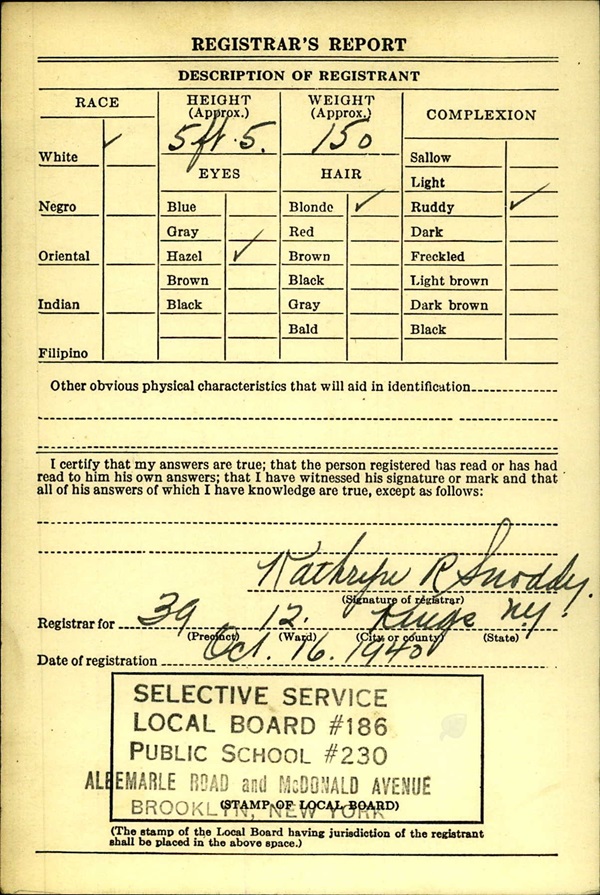 REGISTRAR'S REPORT
DESCRIPTION OF REGISTRANT
RACE
HEIGHT (Approx.)
WEIGHT (Approx.)
COMPLEXION
5 ft. 5.
150
White ✓
EYES
HAIR
Sallow
Light
Negro
Blue
Blonde ✓
Ruddy ✓
Gray
Red
Dark
Oriental
Hazel ✓
Brown
Freckled
Brown
Black
Light brown
Indian
Black
Gray
Dark brown
Bald
Black
Filipino
Other obvious physical characteristics that will aid in identification
I certify that my answers are true; that the person registered has read or has had
read to him his own answers; that I have witnessed his signature or mark and that
all of his answers of which I have knowledge are true, except as follows:
Kathryn R Snoddy.
(Signature of registrar)
Registrar for 39 12. Kings N.Y.
(Precinct) (Ward) (City or county) (State)
Date of registration Oct. 16. 1940
SELECTIVE SERVICE
LOCAL BOARD #186
PUBLIC SCHOOL #230
ALBEMARLE ROAD and McDONALD AVENUE
BROOKLYN, NEW YORK
(STAMP OF LOCAL BOARD)
(The stamp of the Local Board having jurisdiction of the registrant
shall be placed in the above space.)